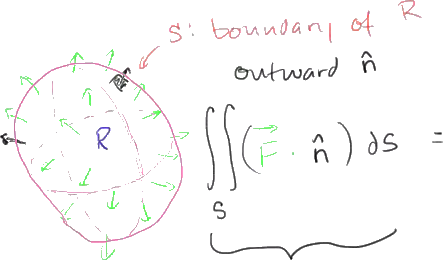 S: boundary of R
outward n̂
R
∬ (F⃗ · n̂) dS =
S